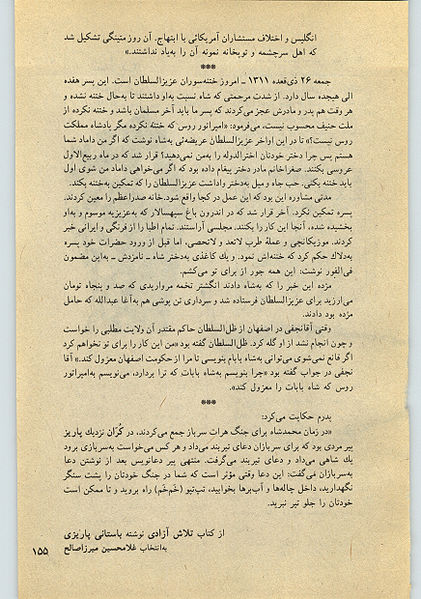 انگلیس و اختلاف مستشاران آمریکائی با ابتهاج. آن روز متینگی تشکیل شد
که اهل سرچشمه و توپخانه نمونه آن را به‌یاد نداشتند.»
***
جمعه ۲۶ ذی‌قعده ۱۳۱۱ ـ امروز ختنه‌سوران عزیزالسلطان است. این پسر هفده
الی هیجده سال دارد. از شدت مرحمتی که شاه نسبت به‌او داشتند تا به‌حال ختنه نشده و
هر وقت هم پدر و مادرش عجز می‌کردند که پسر ما باید آخر مسلمان باشد و ختنه نکرده از
ملت حنیف محسوب نیست، می‌فرمود: «امپراتور روس که ختنه نکرده مگر پادشاه مملکت
روس نیست؟» تا در این اواخر عزیزالسلطان عریضه‌ئی به‌شاه نوشت که اگر من داماد شما
هستم پس چرا دختر خودتان اخترالدوله را به‌من نمی‌دهید؟ قرار شد که در ماه ربیع‌الاول
عروسی بکنند. صغراخانم مادر دختر پیغام داده بود که اگر می‌خواهی داماد من شوی اول
باید ختنه بکنی. حب جاه و میل به‌دختر واداشت عزیزالسلطان را که تمکین به‌ختنه بکند.
مدتی مشاوره این بود که این عمل در کجا واقع شود. خانه صدراعظم را معین کردند.
پسره تمکین نکرد. آخر قرار شد که در اندرون باغ سپهسالار که به‌عزیزیه موسوم و به‌او
بخشیده شده، آنجا این کار را بکنند. مجلسی آراستند. تمام اطبا را از فرنگی و ایرانی خبر
کردند. موزیکانچی و عملهٔ طرب لاتعد و لاتحصی، اما قبل از ورود حضرات خود پسره
به‌دلاک حکم کرد که ختنه‌اش نمود. و یك کاغذی به‌دختر شاه ـ نامزدش ـ به‌این مضمون
فی‌الفور نوشت: این همه جور از برای تو می‌کشم.
مژده این خبر را که به‌شاه دادند انگشتر تخمه مرواریدی که صد و پنجاه تومان
می‌ارزید برای عزیزالسلطان فرستاده شد و سرداری تن پوشی هم به‌آغا عبدالله که حامل
مژده بود دادند.
وقتی آقانجفی در اصفهان از ظل‌السلطان حاکم مقتدر آن ولایت مطلبی را خواست
و چون انجام نشد از او گله کرد. ظل‌السلطان گفته بود «من این کار را برای تو نخواهم کرد
اگر قانع نمی‌شوی می‌توانی به‌شاه بابام بنویسی تا مرا از حکومت اصفهان معزول کند.» آقا
نجفی در جواب گفته بود «چرا بنویسم به‌شاه بابات که ترا بردارد، می‌نویسم به‌امپراتور
روس که شاه بابات را معزول کند».
***
پدرم حکایت می‌کرد:
«در زمان محمدشاه برای جنگ هرات سرباز جمع می‌کردند، در کُرّان نزدیك پاریز
پیر مردی بود که برای سربازان دعای تیربند می‌داد و هر کس می‌خواست به‌سربازی برود
یك شاهی می‌داد و دعای تیربند می‌گرفت. منتهی پیر دعانویس بعد از نوشتن دعا
به‌سربازان می‌گفت: این دعا وقتی مؤثر است که شما در جنگ خودتان را پشت سنگر
نگهدارید، داخل چاله‌ها و آب‌برها بخوابید، تپ‌تپو (خم‌خم) راه بروید و تا ممکن است
خودتان را جلو تیر نبرید.
از کتاب تلاش آزادی نوشته باستانی پاریزی
به‌انتخاب غلامحسین میرزاصالح
۱۵۵